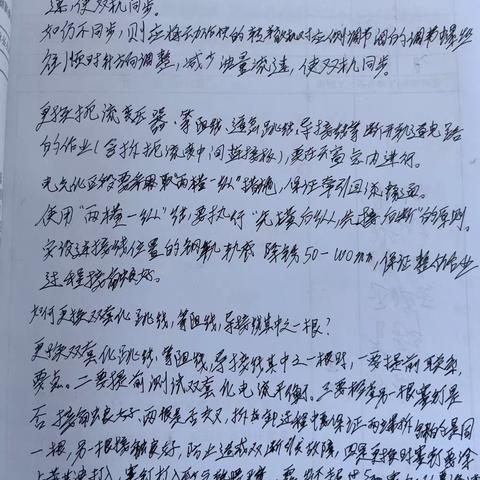 速，使双机同步。
如仍不同步，则应将动作快的转辙机对应侧调节阀的调节螺丝
往顺时针方向调整，减少油量流速，使双机同步。
更换扼流变压器、等阻线、适忘跳线、导接线等断开轨道电路
的作业(含拆扼流变中间连接板)，要在天窗点内进行。
电气化区段要采取"两横一纵"措施，保证牵引回流畅通。
使用"两横一纵"线，要执行"先横后纵，先接后断"的原则。
安设连接线位置的钢轨 除锈50-100mm，保证整个作业
过程接触良好。
如何更换双套化跳线，等阻线，导接线其中之一根？
更换双套化跳线，等阻线，导接线其中之一根时，一要提前联系，
要点。二要提前测试双套化电流平衡。三要检查另一根塞钉是
否接触良好，两根是否交叉，拆卸过程中要保证两端拆卸的是同
一根，另一根接触良好，防止造成双断引发故障，四是更换时塞钉要涂